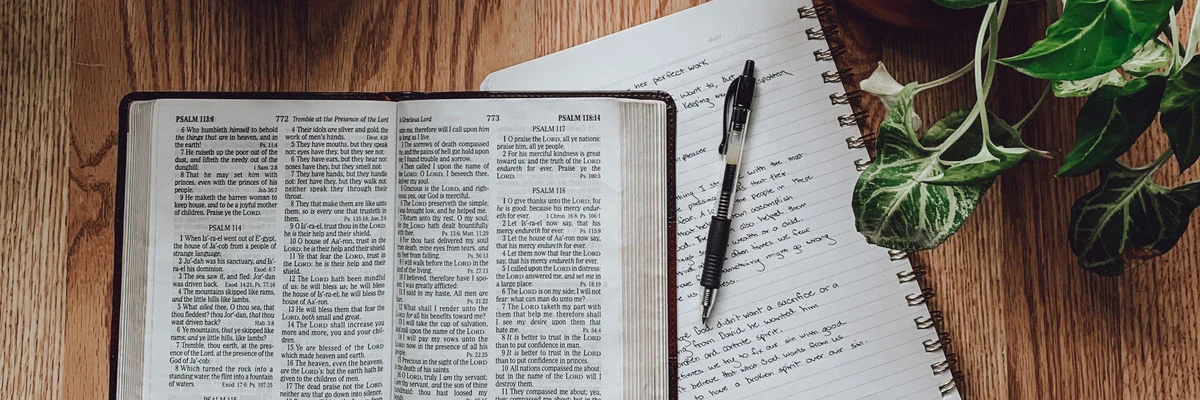 PSALM 113:6
772
Tremble at the Presence of the Lord
6 Who humbleth himself to behold
the things that are in heaven, and in
the earth! Ps. 11:4
7 He raiseth up the poor out of the
dust, and lifteth the needy out of the
dunghill;
8 That he may set him with
princes, even with the princes of
his people. Job 36:7
9 He maketh the barren woman to
keep house, and to be a joyful mother
of children. Praise ye the LORD.
PSALM 114
1 When Is'-ra-el went out of E'-gypt,
the house of Ja'-cob from a people of
strange language;
2 Ju'-dah was his sanctuary, and Is'-
ra-el his dominion. Exod. 6:7
3 The sea saw it, and fled: Jor'-dan
was driven back. Exod. 14:21, Ps. 77:16
4 The mountains skipped like rams,
and the little hills like lambs.
5 What ailed thee, O thou sea, that
thou fleddest? thou Jor'-dan, that thou
wast driven back? Hab. 3:8
6 Ye mountains, that ye skipped like
rams; and ye little hills, like lambs?
7 Tremble, thou earth, at the pres-
ence of the Lord, at the presence of the
God of Ja'-cob;
8 Which turned the rock into a
standing water, the flint into a fountain
of waters. Exod. 17:6 Ps. 107:35
PSALM 115
4 Their idols are silver and gold, the
work of men's hands. Deut. 4:28
5 They have mouths, but they speak
not: eyes have they, but they see not:
6 They have ears, but they hear not:
noses have they, but they smell not:
7 They have hands, but they handle
not: feet have they, but they walk not:
neither speak they through their
throat.
8 They that make them are like unto
them; so is every one that trusteth in
them. Ps. 135:18
9 O Is'-ra-el, trust thou in the LORD:
he is their help and their shield.
10 O house of Aa'-ron, trust in the
LORD: he is their help and their shield.
11 Ye that fear the LORD, trust in
the LORD: he is their help and their
shield.
12 The LORD hath been mindful
of us: he will bless us; he will bless
the house of Is'-ra-el; he will bless the
house of Aa'-ron.
13 He will bless them that fear the
LORD, both small and great.
14 The LORD shall increase you
more and more, you and your chil-
dren.
15 Ye are blessed of the LORD
which made heaven and earth.
16 The heaven, even the heavens,
are the LORD's: but the earth hath he
given to the children of men.
17 The dead praise not the LORD,
neither any that go down into silence.
Gracious Lord
773
PSALM 118:14
me, therefore will I call upon him
as long as I live.
The sorrows of death compassed
me, and the pains of hell gat hold upon
me: I found trouble and sorrow.
Then called I upon the name of
the LORD; O LORD, I beseech thee,
deliver my soul.
Gracious is the LORD, and righ-
teous; yea, our God is merciful.
The LORD preserveth the simple:
I was brought low, and he helped me.
Return unto thy rest, O my soul;
for the LORD hath dealt bountifully
with thee. Ps. 13:6, Matt. 11:29
For thou hast delivered my soul
from death, mine eyes from tears, and
my feet from falling. Ps. 56:13
I will walk before the LORD in the
land of the living. Ps. 27:13
I believed, therefore have I spo-
ken: I was greatly afflicted:
I said in my haste, All men are
liars. Ps. 31:22
What shall I render unto the
LORD for all his benefits toward me?
I will take the cup of salvation,
and call upon the name of the LORD.
I will pay my vows unto the
LORD now in the presence of all his
people. Ps. 22:25
Precious in the sight of the LORD
is the death of his saints.
O LORD, truly I am thy servant;
I am thy servant, and the son of thine
handmaid: thou hast loosed my
PSALM 117
1 O praise the LORD, all ye nations:
praise him, all ye people.
2 For his merciful kindness is great
toward us: and the truth of the LORD
endureth for ever. Praise ye the
LORD. Ps. 100:5
PSALM 118
1 O give thanks unto the LORD; for
he is good: because his mercy endur-
eth for ever. 1 Chron. 16:8, Ps. 106:1
2 Let Is'-ra-el now say, that his
mercy endureth for ever. Ps. 115:9
3 Let the house of Aa'-ron now say,
that his mercy endureth for ever.
4 Let them now that fear the LORD
say, that his mercy endureth for ever.
5 I called upon the LORD in distress:
the LORD answered me, and set me in
a large place. Ps. 18:19
6 The LORD is on my side; I will not
fear: what can man do unto me?
7 The LORD taketh my part with
them that help me: therefore shall
I see my desire upon them that
hate me. Ps. 54:4
8 It is better to trust in the LORD
than to put confidence in man.
9 It is better to trust in the LORD
than to put confidence in princes.
10 All nations compassed me about:
but in the name of the LORD will I
destroy them.
11 They compassed me about; yea,
they compassed me about: but in the
her perfect work
want to, but
spotted
keeping my
pleaser
thing I with the most
people in these
accomplish
also helped them
wealth or a child.
often times we fear
something might go wrong
God didn't want a sacrifice or a
from David he wanted him
broken and contrite spirit.
times we try to fix our sin when good
believe that what God wants from us
to have a broken spirit over our sin.